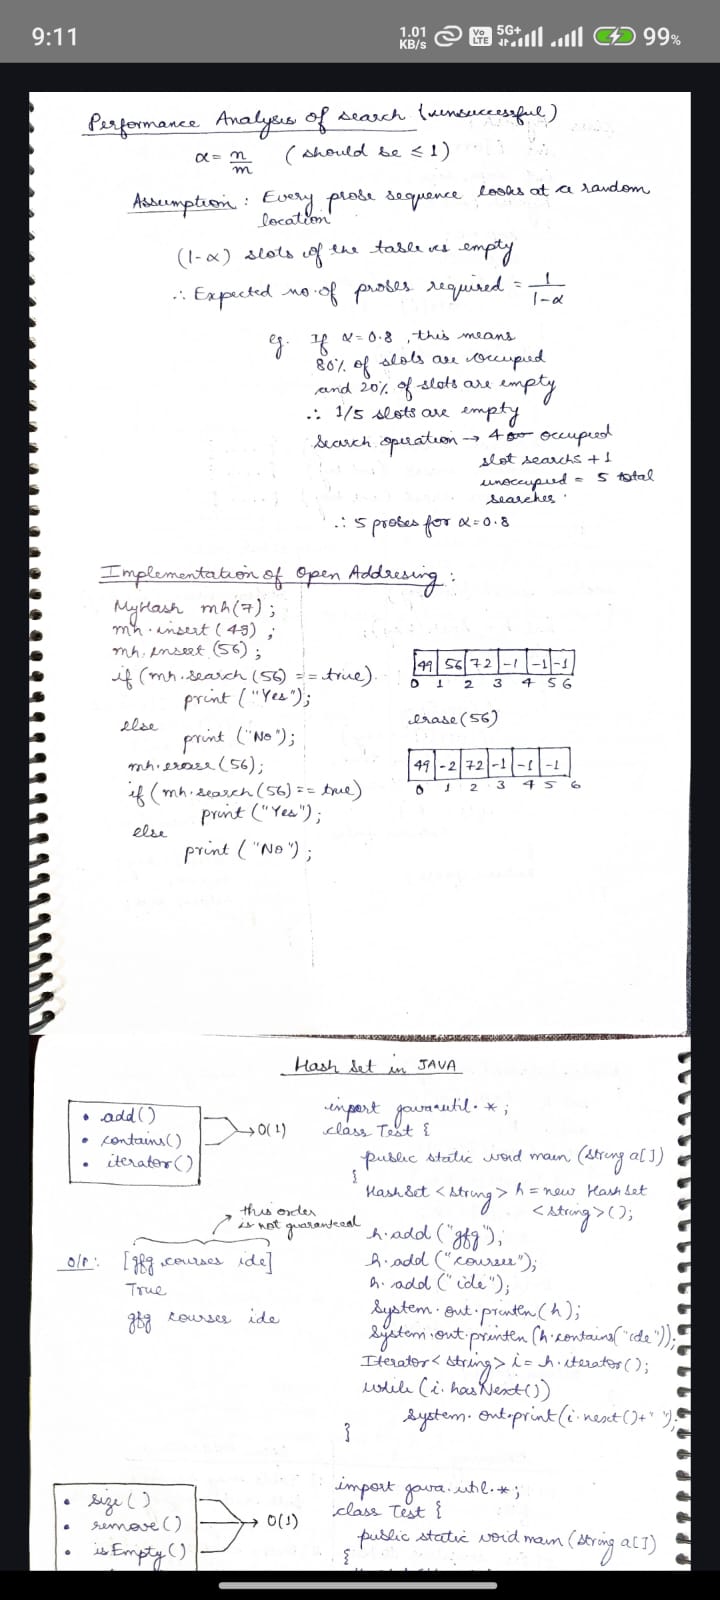 9:11 1.01 KB/s Vo LTE 5G+ 99%
Performance Analysis of search (unsuccessful)
α = n/m (should be ≤ 1)
Assumption : Every probe sequence looks at a random
location
(1-α) slots of the table is empty
∴ Expected no. of probes required = 1/1-α
eg. If α = 0.8, this means
80% of slots are occupied
and 20% of slots are empty
∴ 1/5 slots are empty
Search operation → 4 occupied
slot searchs + 1
unoccupied = 5 total
searches.
∴ 5 probes for α = 0.8
Implementation of Open Addresing :
MyHash mh(7);
mh.insert(49);
mh.insert(56);
if (mh.search(56) == true)
print ("Yes");
else
print ("No");
mh.erase(56);
if (mh.search(56) == true)
print ("Yes");
else
print ("No");
49 56 72 -1 -1 -1
0 1 2 3 4 5 6
erase(56)
49 -2 72 -1 -1 -1
0 1 2 3 4 5 6
Hash Set in JAVA
• add()
• contains()
• iterator()
→ O(1)
this order
is not guaranteed
O/P : [gfg courses ide]
True
gfg courses ide
import java.util.*;
class Test {
public static void main (String a[])
{
HashSet <String> h = new HashSet
<String>();
h.add("gfg");
h.add("courses");
h.add("ide");
System.out.println(h);
System.out.println(h.contains("ide"));
Iterator<String> i = h.iterator();
while (i.hasNext())
System.out.print(i.next()+" ");
}
• size()
• remove()
• isEmpty()
→ O(1)
import java.util.*;
class Test {
public static void main (String a[])
{